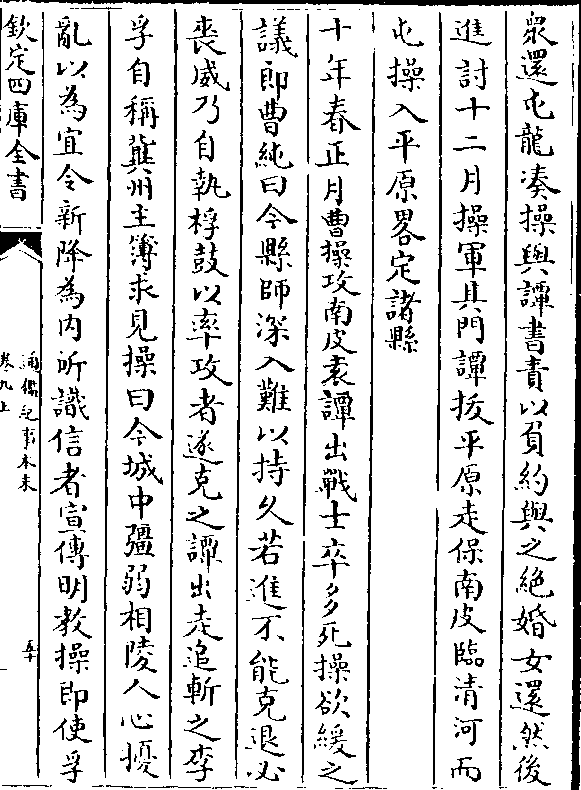 衆還屯龍湊操與譚書責以負約與之絶婚女還然後
進討十二月操軍其門譚拔平原走保南皮臨清河而
屯操入平原畧定諸縣
十年春正月曹操攻南皮袁譚出戰士卒多死操欲緩之
議郎曹純曰今縣師深入難以持久若進不能克退必
喪威乃自執桴鼓以率攻者遂克之譚出走追斬之李
孚自稱冀州主簿求見操曰今城中彊弱相陵人心擾
亂以為宜令新降為内所識信者宣傳明教操即使孚
欽定四庫全書
通鑑紀事本末
卷九上
五十